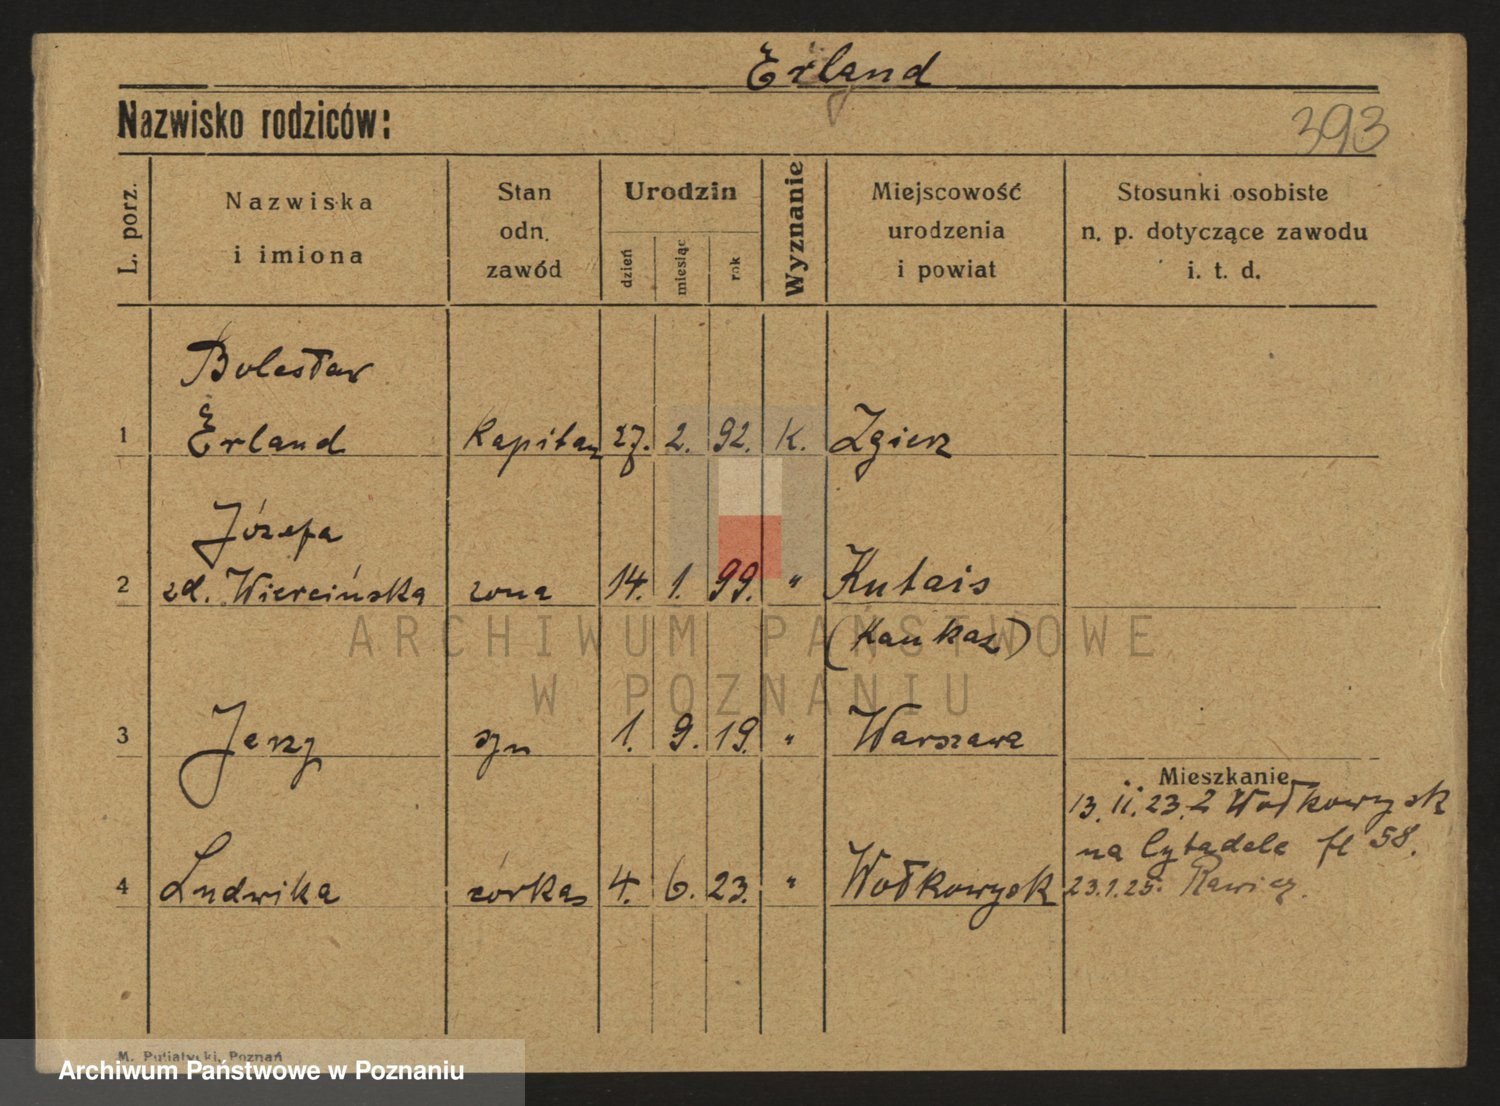 Erland
Nazwisko rodziców:
393
L. porz.
Nazwiska
i imiona
Stan
odn.
zawód
Urodzin
dzień
miesiąc
rok
Wyznanie
Miejscowość
urodzenia
i powiat
Stosunki osobiste
n. p. dotyczące zawodu
i. t. d.
Bolesław
1 Erland kapitan 27. 2. 92. K. Zgierz
Józefa
2 zd. Wiercińska żona 14. 1. 99. " Kutais
(Kaukaz)
ARCHIWUM PAŃSTWOWE
W POZNANIU
3 Jerzy syn 1. 9. 19. " Warszawa
Mieszkanie
13. II. 23. z Wołkowysk
na Cytadelę 58.
4 Ludwika córka 4. 6. 23. " Wołkowysk
23.1.25. Rawicz.
M. Putiatycki, Poznań
Archiwum Państwowe w Poznaniu